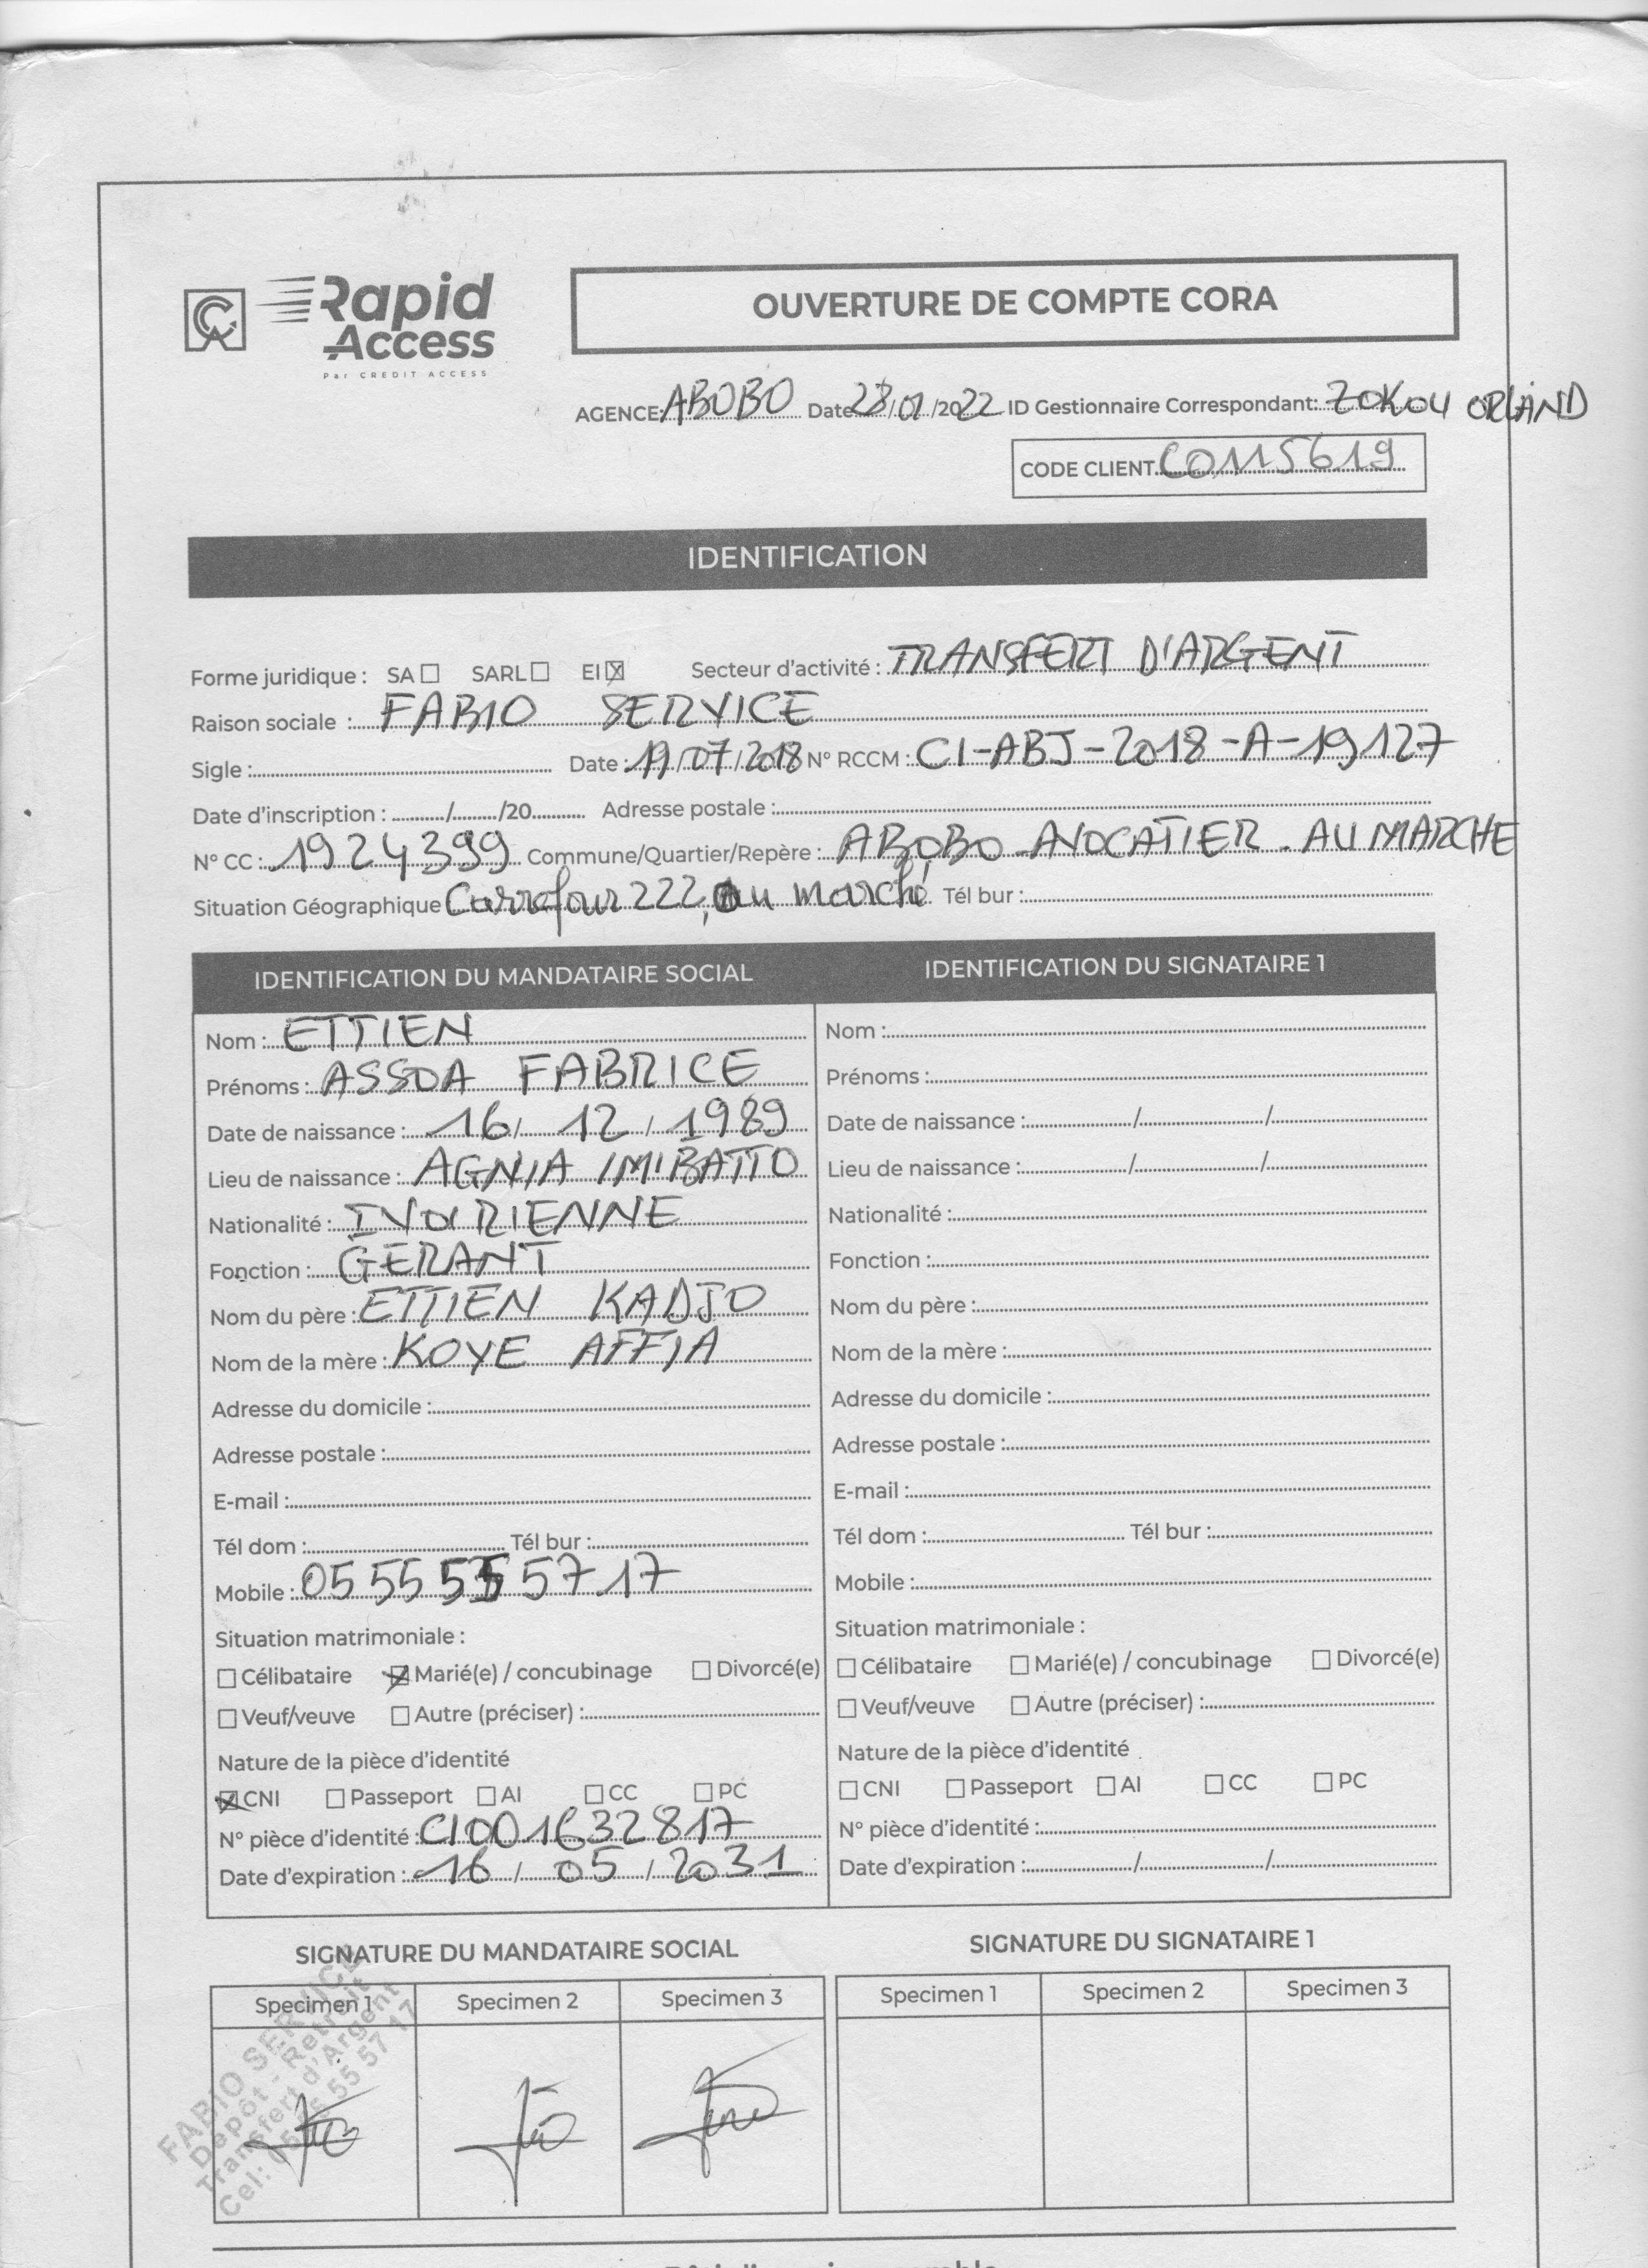 Rapid
Access
Par CREDIT ACCESS
OUVERTURE DE COMPTE CORA
AGENCE: ABOBO Date 28/01/2022 ID Gestionnaire Correspondant: ZOKOU ORLAND
CODE CLIENT C0115619
IDENTIFICATION
Forme juridique : SA ☐ SARL ☐ EI ☒ Secteur d'activité : TRANSFERT D'ARGENT
Raison sociale : FABIO SERVICE
Sigle : Date : 19/07/2018 N° RCCM : CI-ABJ-2018-A-19127
Date d'inscription : ......../......../20........ Adresse postale :
N° CC : 1924399 Commune/Quartier/Repère : ABOBO-AVOCATIER. AU MARCHE
Situation Géographique Carrefour 222, Au marché Tél bur :
IDENTIFICATION DU MANDATAIRE SOCIAL
Nom : ETTIEN
Prénoms : ASSOA FABRICE
Date de naissance : 16 / 12 / 1989
Lieu de naissance : AGNIA IMIBATTO
Nationalité : IVOIRIENNE
Fonction : GERANT
Nom du père : ETTIEN KADJO
Nom de la mère : KOYE AFFIA
Adresse du domicile :
Adresse postale :
E-mail :
Tél dom : Tél bur :
Mobile : 05 55 55 57 17
Situation matrimoniale :
☐ Célibataire ☒ Marié(e) / concubinage ☐ Divorcé(e)
☐ Veuf/veuve ☐ Autre (préciser) :
Nature de la pièce d'identité
☒ CNI ☐ Passeport ☐ AI ☐ CC ☐ PC
N° pièce d'identité : CI001632817
Date d'expiration : 16 / 05 / 2031
IDENTIFICATION DU SIGNATAIRE 1
Nom :
Prénoms :
Date de naissance : / /
Lieu de naissance : / /
Nationalité :
Fonction :
Nom du père :
Nom de la mère :
Adresse du domicile :
Adresse postale :
E-mail :
Tél dom : Tél bur :
Mobile :
Situation matrimoniale :
☐ Célibataire ☐ Marié(e) / concubinage ☐ Divorcé(e)
☐ Veuf/veuve ☐ Autre (préciser) :
Nature de la pièce d'identité
☐ CNI ☐ Passeport ☐ AI ☐ CC ☐ PC
N° pièce d'identité :
Date d'expiration : / /
SIGNATURE DU MANDATAIRE SOCIAL
Specimen 1 Specimen 2 Specimen 3
FABIO SERVICE
Dépôt - Retrait
Transfert d'Argent
Cel: 55 57 17
SIGNATURE DU SIGNATAIRE 1
Specimen 1 Specimen 2 Specimen 3